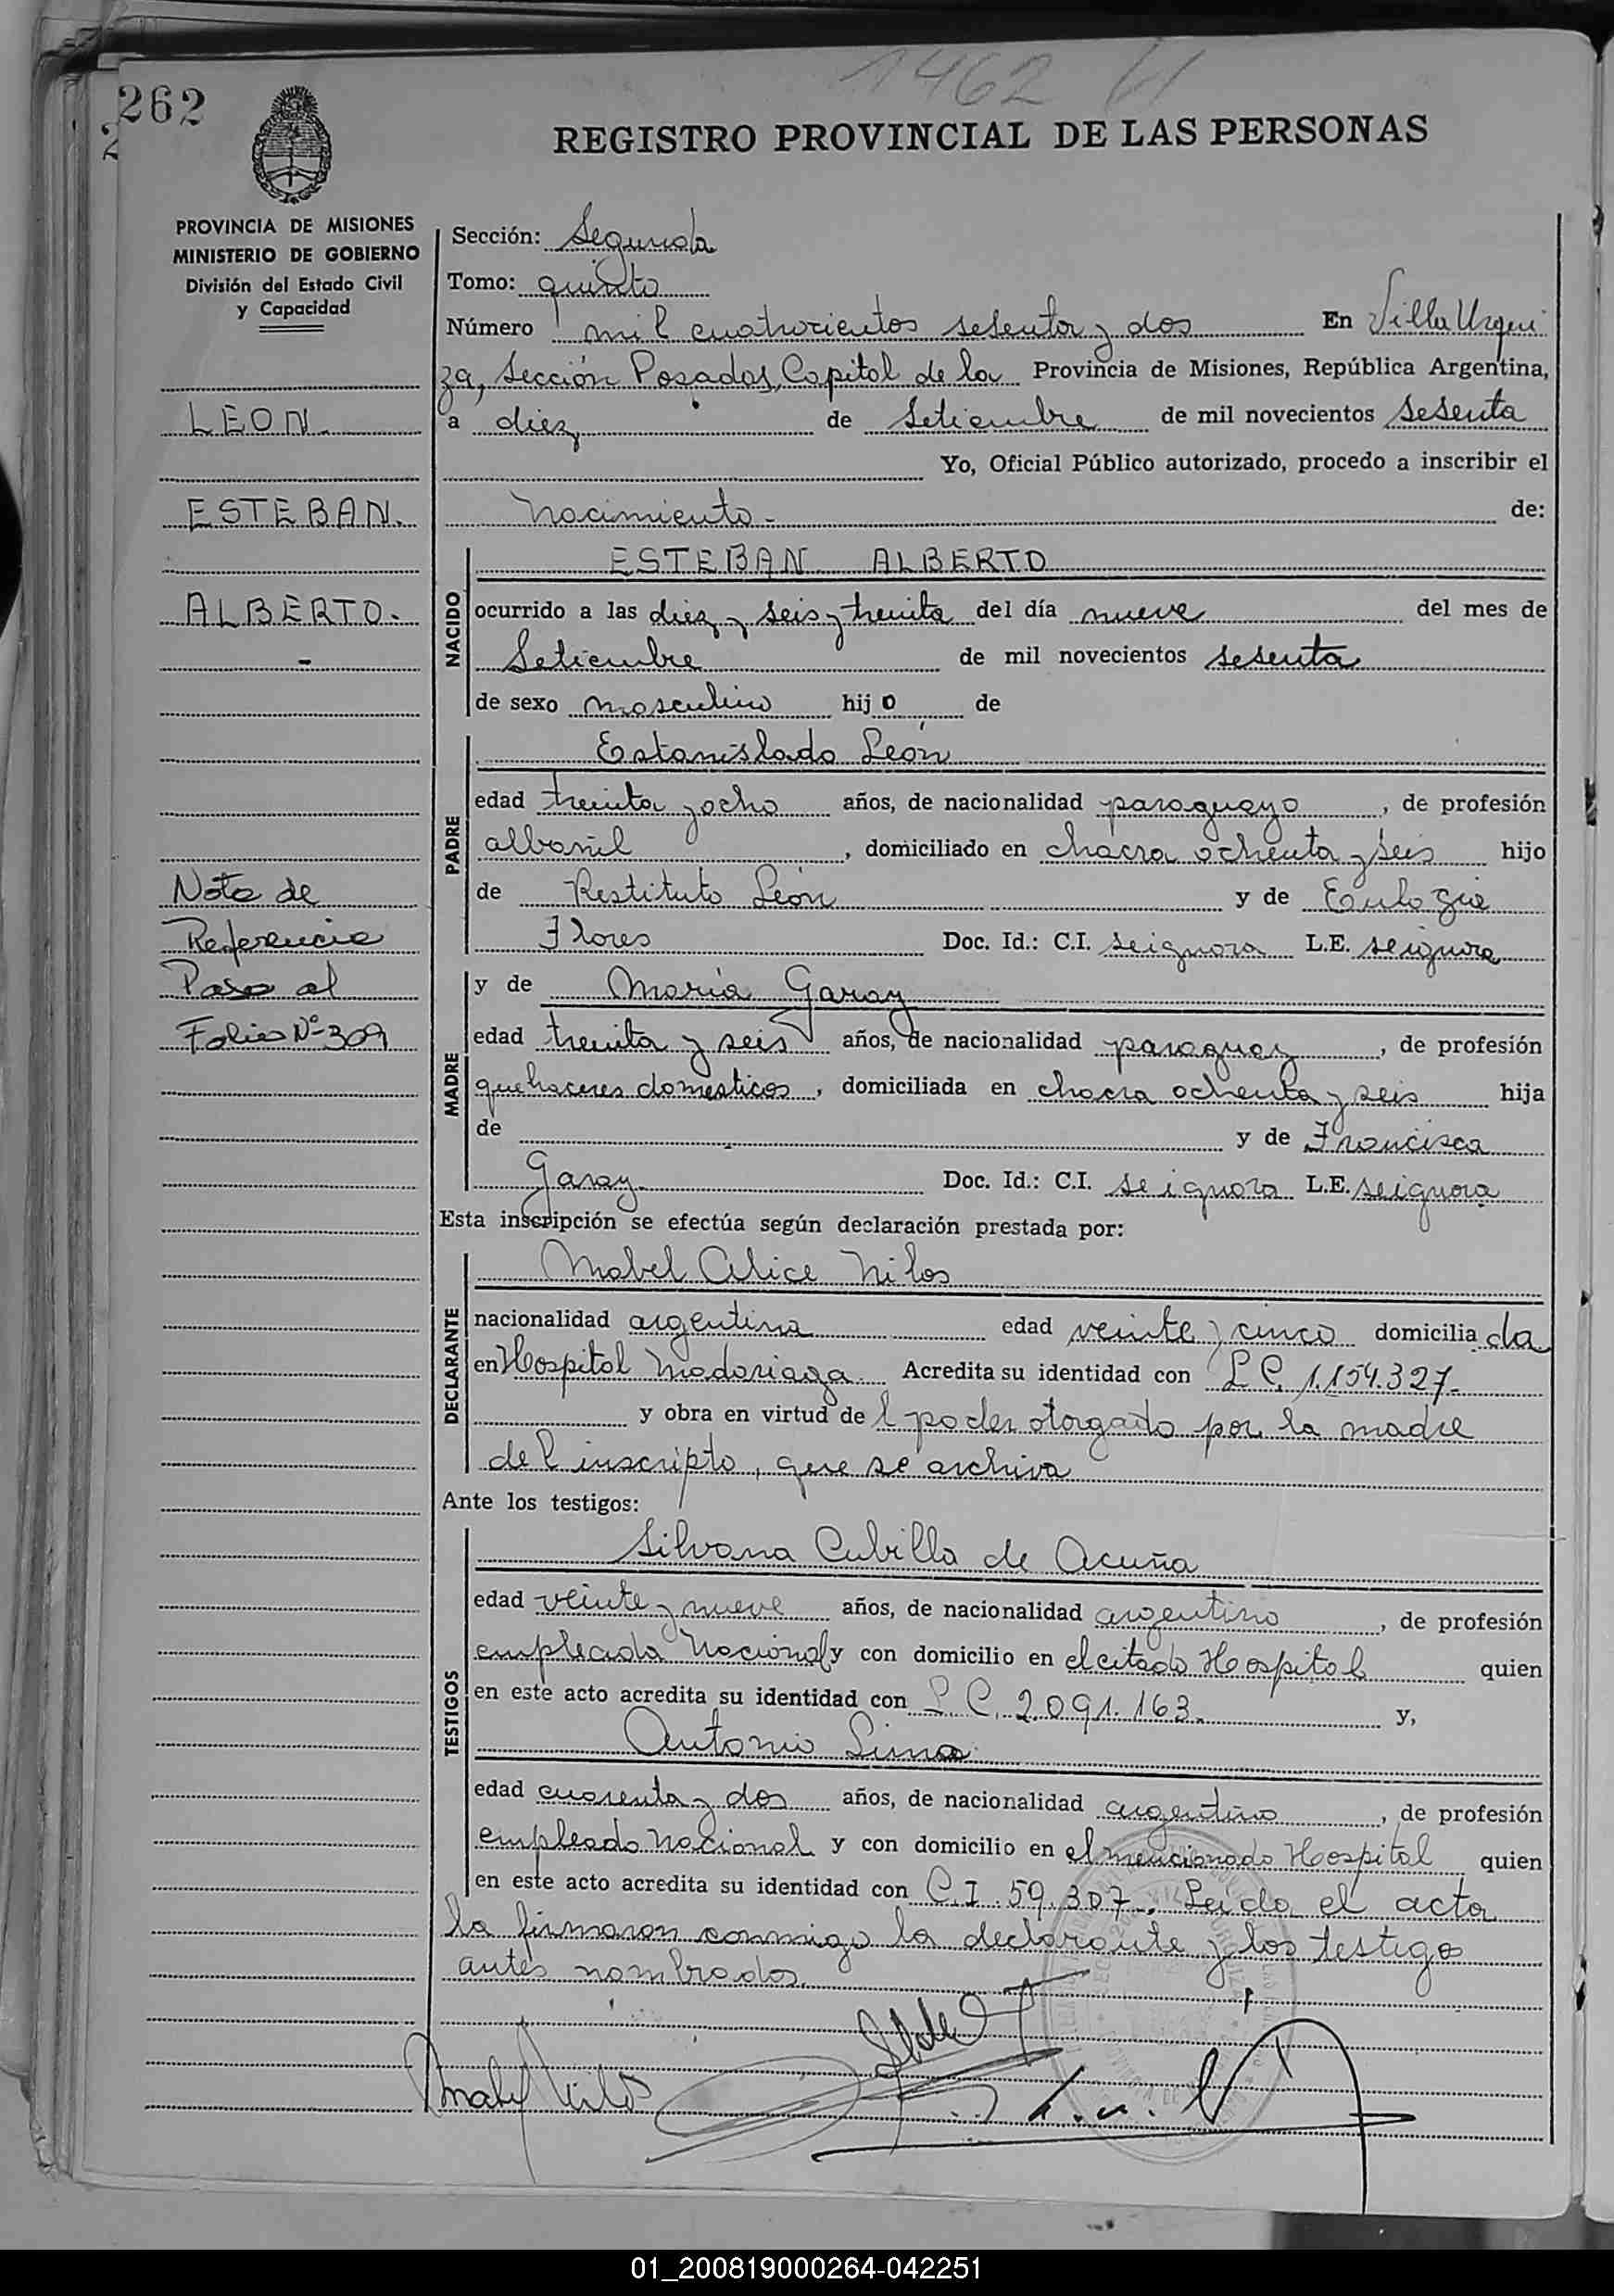 1462
262
REGISTRO PROVINCIAL DE LAS PERSONAS
PROVINCIA DE MISIONES
MINISTERIO DE GOBIERNO
División del Estado Civil
y Capacidad
LEON.
ESTEBAN.
ALBERTO.-
Nota de
Referencia
Pasa al
Folio Nº 309
Sección: Segunda
Tomo: quinto
Número mil cuatrocientos sesenta y dos En Villa Urqui
za, Sección Posadas, Capital de la Provincia de Misiones, República Argentina,
a diez de Setiembre de mil novecientos sesenta
Yo, Oficial Público autorizado, procedo a inscribir el
nacimiento- de:
NACIDO
ESTEBAN ALBERTO
ocurrido a las diez y seis y treinta del día nueve del mes de
Setiembre de mil novecientos sesenta
de sexo masculino hijo de
PADRE
Estanislado León
edad treinta y ocho años, de nacionalidad paraguayo, de profesión
albañil, domiciliado en chacra ochenta y seis hijo
de Restituto León y de Eulogia
Flores Doc. Id.: C.I. se ignora L.E. se ignora
MADRE
y de María Garay
edad treinta y seis años, de nacionalidad paraguay, de profesión
quehaceres domesticos, domiciliada en chacra ochenta y seis hija
de - y de Francisca
Garay Doc. Id.: C.I. se ignora L.E. se ignora
Esta inscripción se efectúa según declaración prestada por:
DECLARANTE
Mabel Alice Nilos
nacionalidad argentina edad veinte y cinco domiciliada
en Hospital Madariaga Acredita su identidad con L C. 1.154.327-
y obra en virtud del poder otorgado por la madre
del inscripto, que se archiva
Ante los testigos:
TESTIGOS
Silvana Cubilla de Acuña
edad veinte y nueve años, de nacionalidad argentino, de profesión
empleada Nacional y con domicilio en el citado Hospital quien
en este acto acredita su identidad con L C. 2.091.163- y,
Antonio Lima
edad cuarenta y dos años, de nacionalidad argentino, de profesión
empleado Nacional y con domicilio en el mencionado Hospital quien
en este acto acredita su identidad con C.I. 59.307-. Leída el acta
la firmaron conmigo la declarante y los testigos
antes nombrados.
Mabel Nilos
01_200819000264-042251